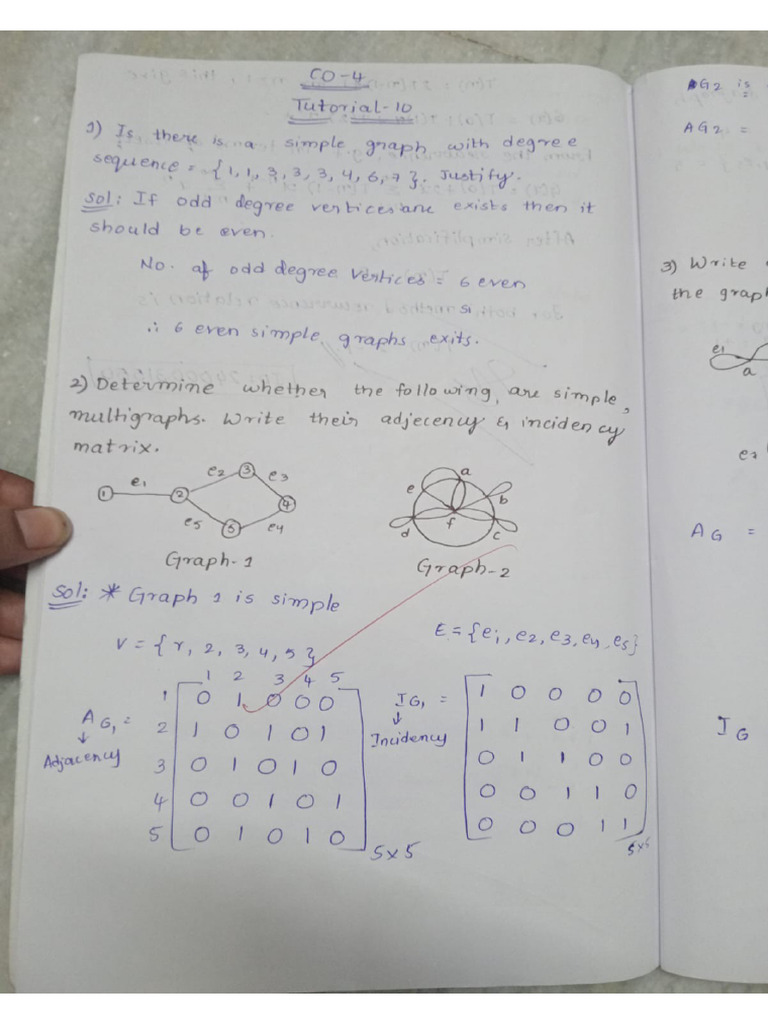 CO-4
Tutorial-10
1) Is there is a simple graph with degree
sequence = {1, 1, 3, 3, 3, 4, 6, 7}. Justify.
Sol: If odd degree vertices are exists then it
should be even.
No. of odd degree vertices = 6 even
si
∴ 6 even simple graphs exits.
2) Determine whether the following are simple,
multigraphs. Write their adjecency & incidency
matrix.
1 e1 2 e2 3 e3 4 e4 5 e5
a b c d e f
Graph-1
Graph-2
Sol: * Graph 1 is simple
V = {1, 2, 3, 4, 5}
E = {e1, e2, e3, e4, e5}
1 2 3 4 5
1 0 1 0 0 0
2 1 0 1 0 1
3 0 1 0 1 0
4 0 0 1 0 1
5 0 1 0 1 0
AG1 =
↓
Adjacency
5x5
IG1 =
↓
Incidency
1 0 0 0 0
1 1 0 0 1
0 1 1 0 0
0 0 1 1 0
0 0 0 1 1
5x5
AG2 is
AG2 =
3) Write
the grap
e1
a
e2
AG =
IG